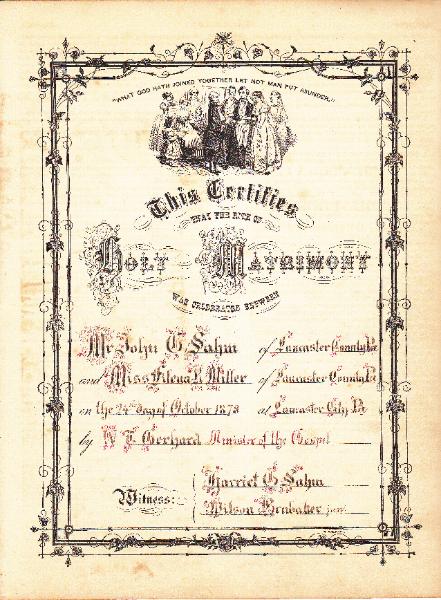 "WHAT GOD HATH JOINED TOGETHER LET NOT MAN PUT ASUNDER."
This Certifies
THAT THE RITE OF
HOLY MATRIMONY
WAS CELEBRATED BETWEEN
Mr John G. Sahm of Lancaster County Pa
and Miss Filena B. Miller of Lancaster County Pa
on the 24th day of October 1878 at Lancaster City Pa
by W. T. Gerhard Minister of the Gospel
Witness:
Harriet G. Sahm
Wilson Brubaker